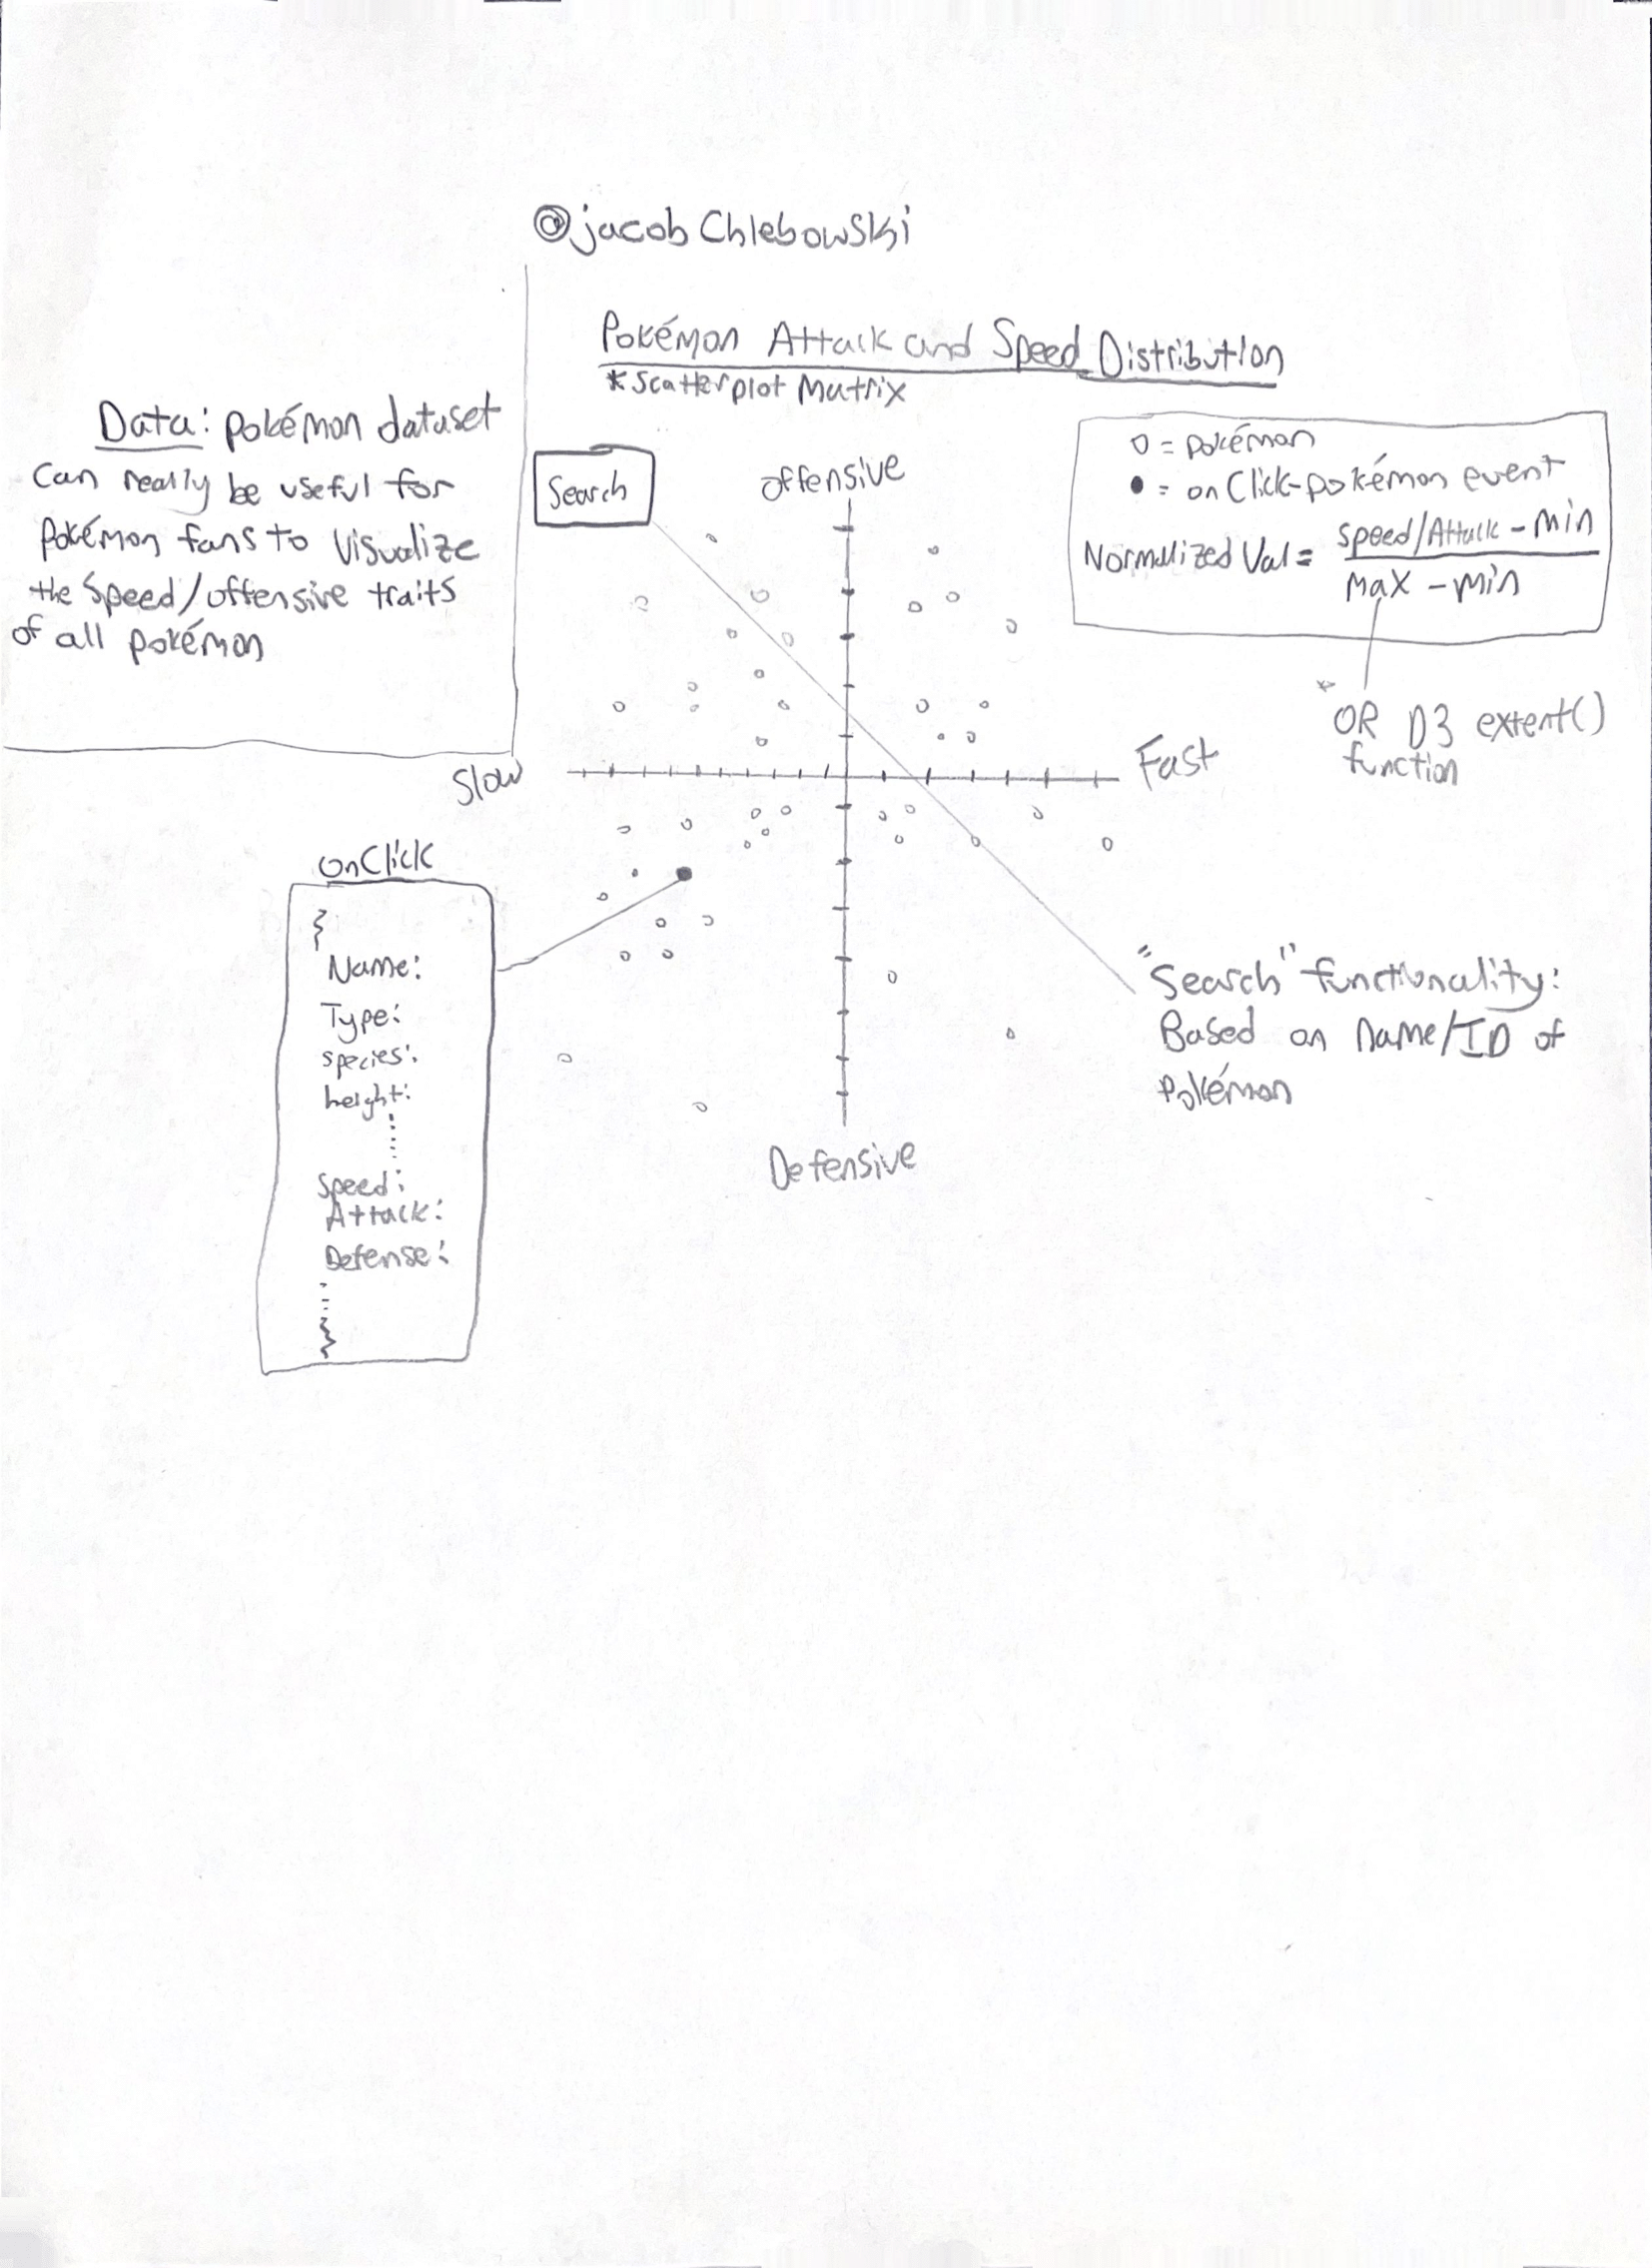 @jacobChlebowski
Pokémon Attack and Speed Distribution
*Scatterplot Matrix
Data: Pokémon dataset
can really be useful for
Pokémon fans to visualize
the speed/offensive traits
of all pokémon
Search
offensive
o = pokémon
● = onClick-pokémon event
Normalized Val = speed/Attack - min
max - min
*OR D3 extent()
function
Slow
Fast
onClick
{
Name:
Type:
species:
height:
Speed:
Attack:
Defense:
}
"Search" functionality:
Based on name/ID of
pokémon
Defensive